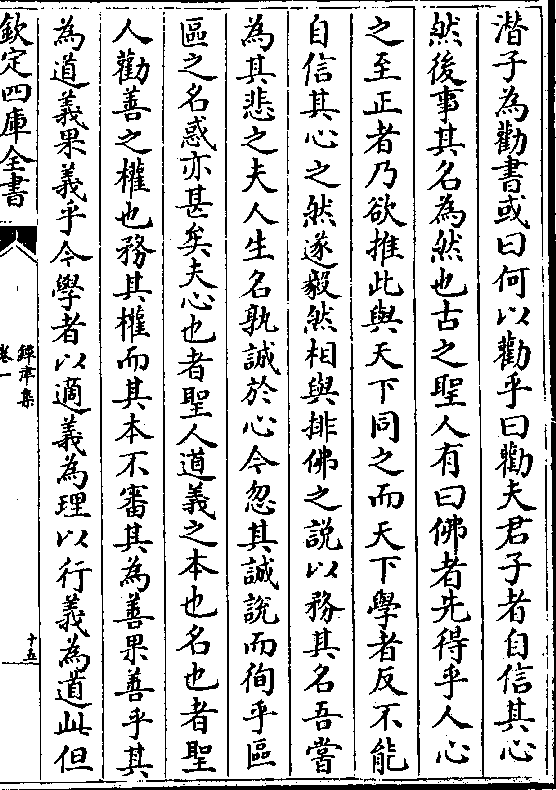 潛子為勸書或曰何以勸乎曰勸夫君子者自信其心
然後事其名為然也古之聖人有曰佛者先得乎人心
之至正者乃欲推此與天下同之而天下學者反不能
自信其心之然遂毅然相與排佛之說以務其名吾嘗
為其悲之夫人生名孰誠於心今忽其誠說而徇乎區
區之名惑亦甚矣夫心也者聖人道義之本也名也者聖
人勸善之權也務其權而其本不審其為善果善乎其
為道義果義乎今學者以適義為理以行義為道此但
欽定四庫全書
鐔津集
卷一
十五